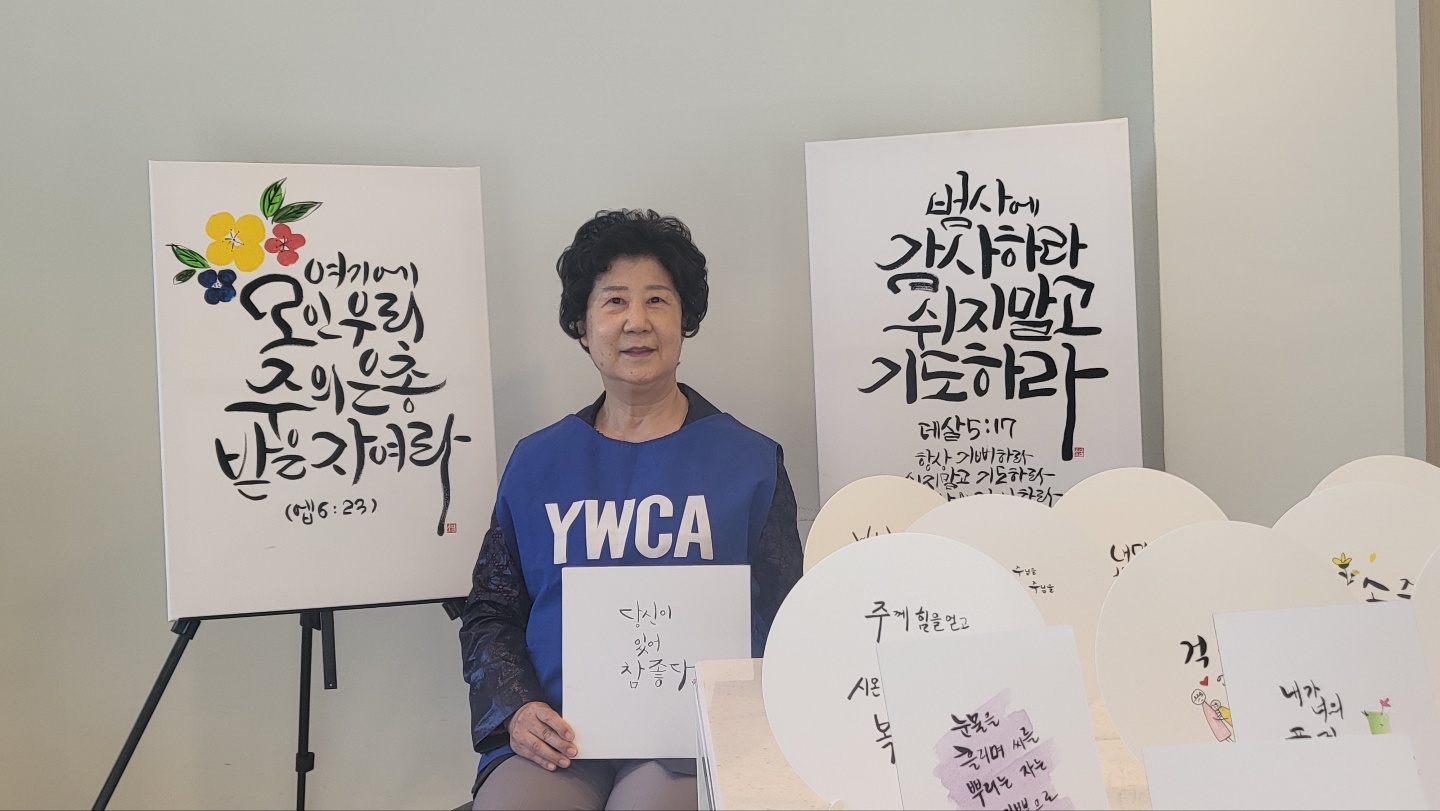 여기에
모인우리
주의은총
받은자여라
(엡6:23)
범사에
감사하라
쉬지말고
기도하라
데살5:17
항상 기뻐하라
쉬지말고 기도하라
YWCA
당신이
있어
참좋다
주께 힘을얻고
시온
복
눈물을
흘리며 씨를
뿌리는 자는
주님을
주님을
걱
내가
너의